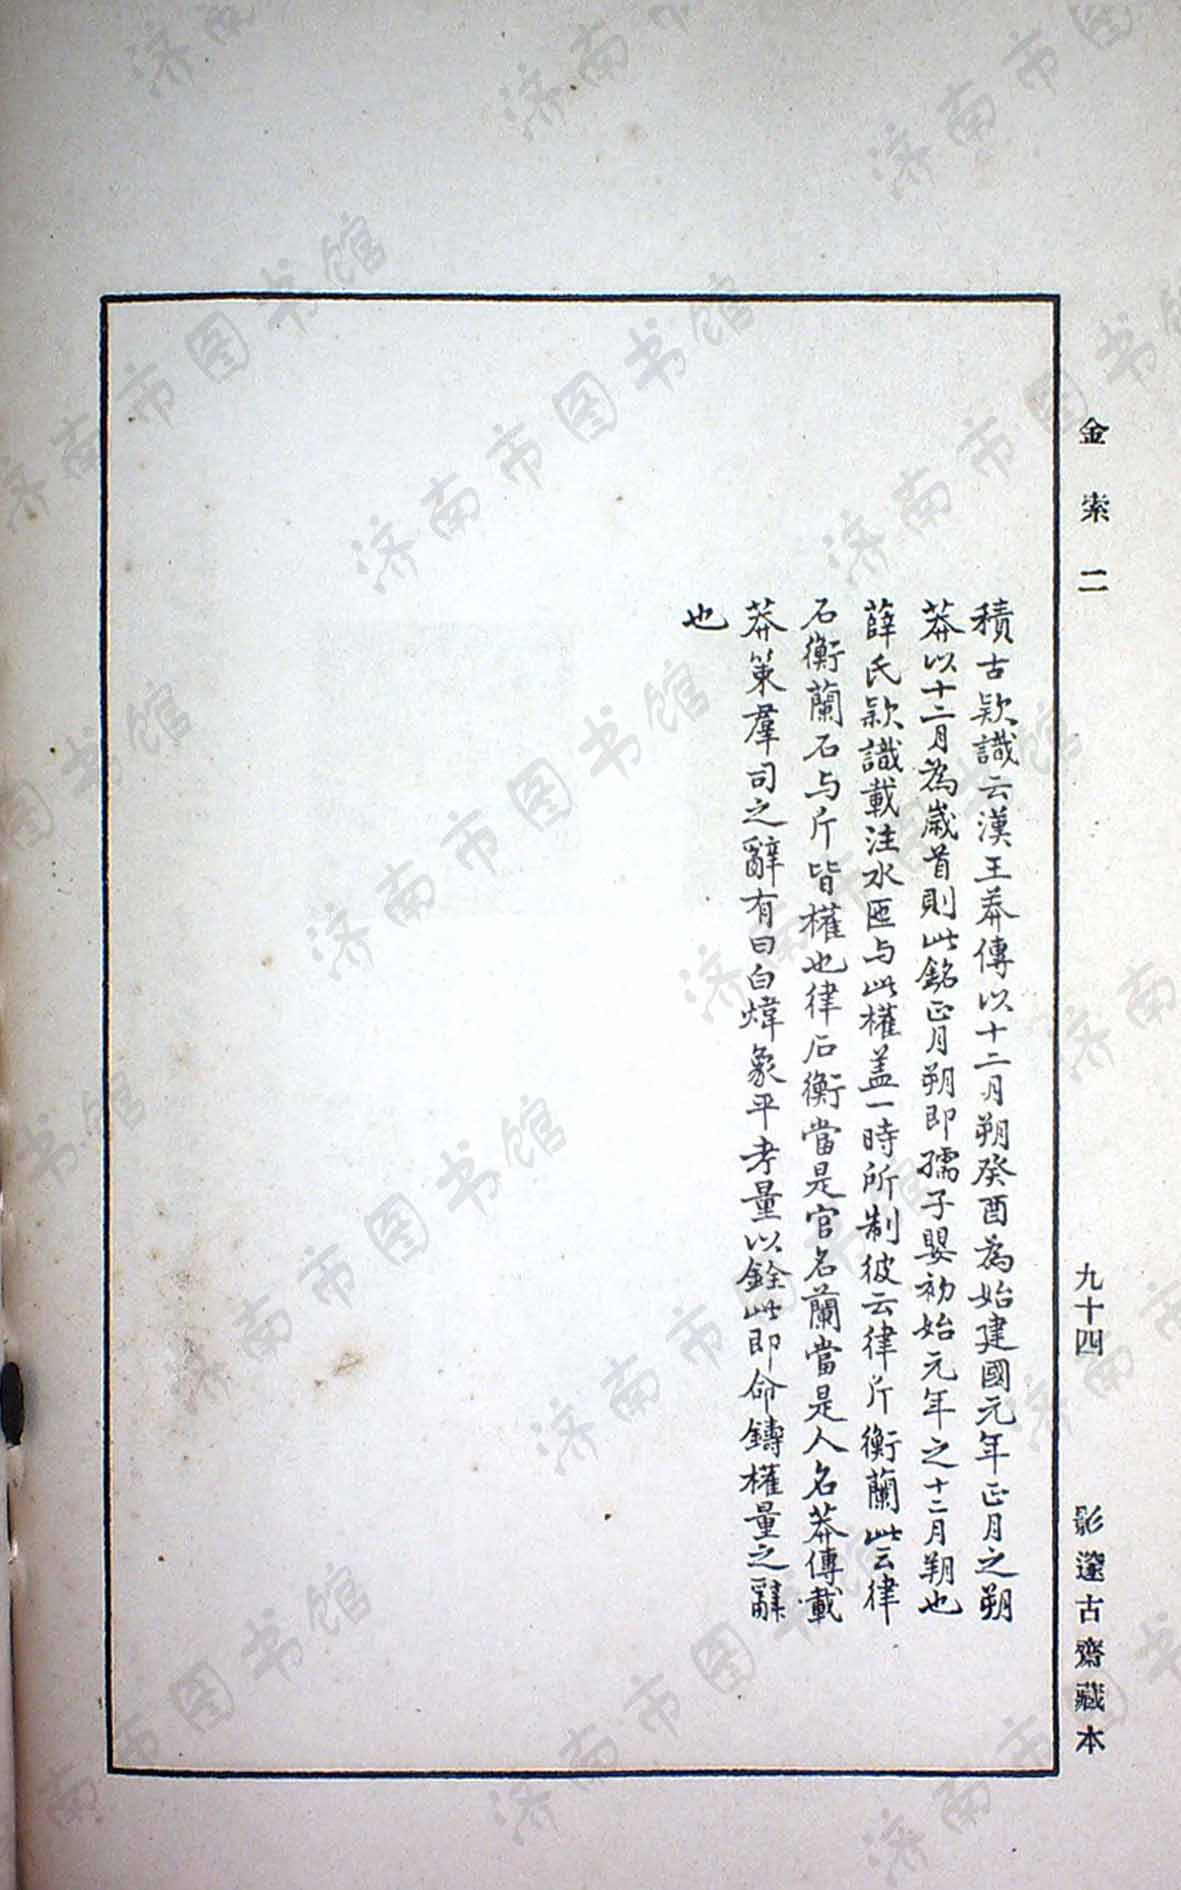 金索二
九十四
影邃古齋藏本
積古款識云漢王莽傳以十二月朔癸酉為始建國元年正月之朔
莽以十二月為歲首則此銘正月朔即孺子嬰初始元年之十二月朔也
薛氏款識載注水匜与此權盖一時所制彼云律斤衡蘭此云律
石衡蘭石与斤皆權也律石衡當是官名蘭當是人名莽傳載
莽策羣司之辭有曰白煒象平考量以銓此即命鑄權量之辭
也
济南市图书馆